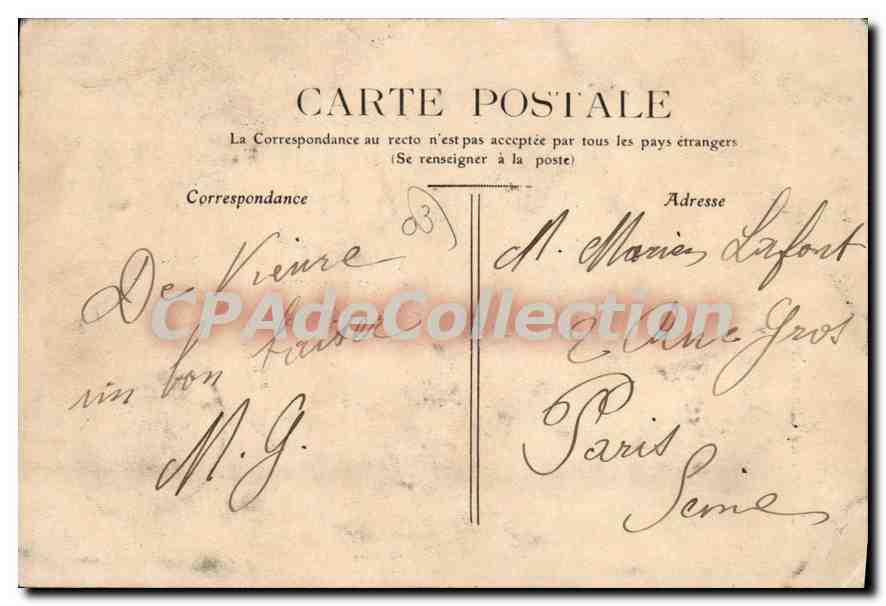 CARTE POSTALE
La Correspondance au recto n'est pas acceptée par tous les pays étrangers
(Se renseigner à la poste)
Correspondance
Adresse
03
De Vieure
un bon baiser
M. G.
M. Marien Lafont
2 Rue Gros
Paris
Seine
CPAdeCollection.com